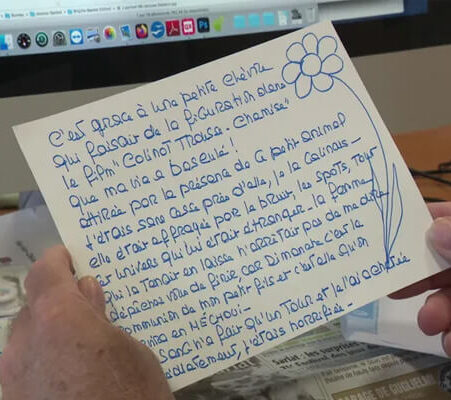 C'est grace à une petite chèvre
qui faisait de la figuration dans
le film "Colinot Trousse-Chemise"
que ma vie a basculé!
attirée par la présence de ce petit animal
j'étais sans cesse près d'elle, je la calinais-
elle était effrayée par le bruit, les spots, tout
cet univers qui lui était étranger. La femme
qui la tenait en laisse n'arrêtait pas de me dire
dépêchez vous de finir car Dimanche c'est la
communion de mon petit fils et c'est elle qu'on
en MÉCHOUI-
sang n'a fait qu'un tour et je l'ai achetée
j'étais horrifiée-
Sarlat: les surprises
GARAGE DE